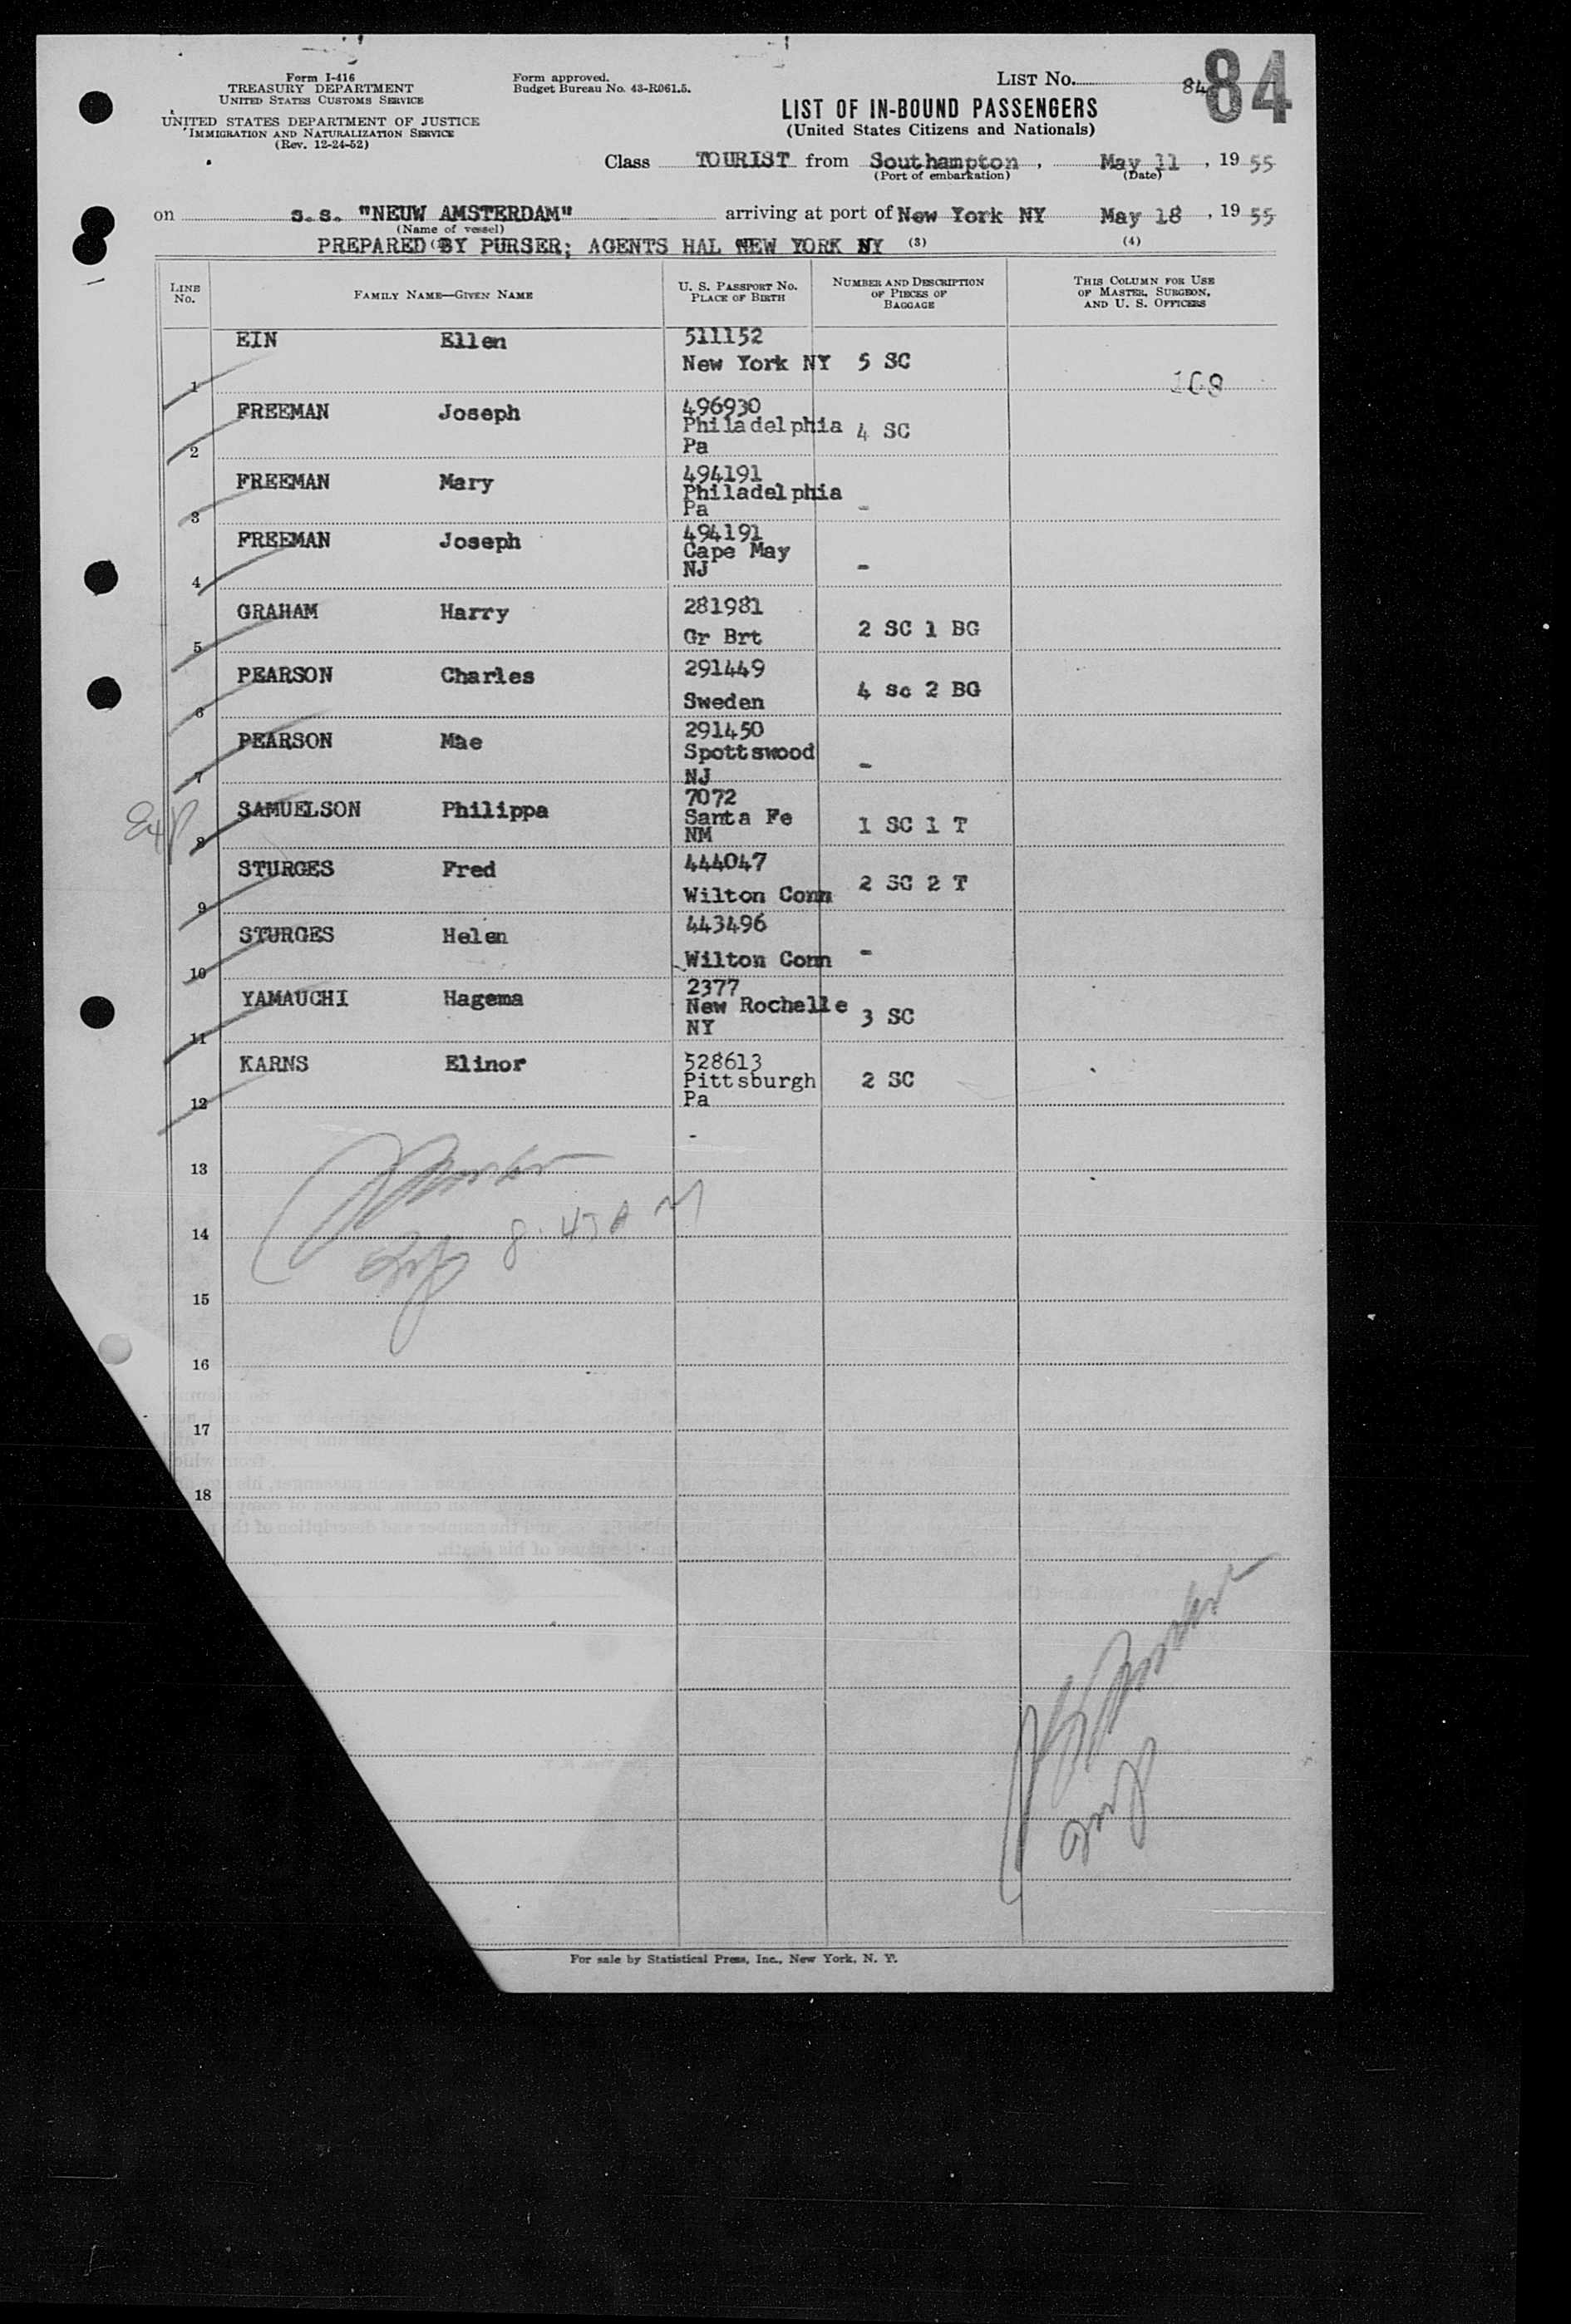 Form I-416
TREASURY DEPARTMENT
UNITED STATES CUSTOMS SERVICE
UNITED STATES DEPARTMENT OF JUSTICE
IMMIGRATION AND NATURALIZATION SERVICE
(Rev. 12-24-52)
Form approved.
Budget Bureau No. 43-R061.5.
LIST NO. 84 84
LIST OF IN-BOUND PASSENGERS
(United States Citizens and Nationals)
Class TOURIST from Southampton, May 11, 19 55
(Port of embarkation) (Date)
on s.s. "NEUW AMSTERDAM" arriving at port of New York NY May 18, 19 55
(Name of vessel)
PREPARED BY PURSER; AGENTS HAL NEW YORK NY (3) (4)
LINE No.
FAMILY NAME—GIVEN NAME
U. S. PASSPORT NO.
PLACE OF BIRTH
NUMBER AND DESCRIPTION
OF PIECES OF
BAGGAGE
THIS COLUMN FOR USE
OF MASTER, SURGEON,
AND U. S. OFFICERS
EIN Ellen 511152
New York NY 5 SC
1 108
FREEMAN Joseph 496930
Philadelphia 4 SC
2 Pa
FREEMAN Mary 494191
Philadelphia
3 Pa -
FREEMAN Joseph 494191
Cape May
4 NJ -
GRAHAM Harry 281981
5 Gr Brt 2 SC 1 BG
PEARSON Charles 291449
6 Sweden 4 sc 2 BG
PEARSON Mae 291450
Spottswood -
7 NJ
SAMUELSON Philippa 7072
Santa Fe 1 SC 1 T
8 NM
STURGES Fred 444047
9 Wilton Conn 2 SC 2 T
STURGES Helen 443496
10 Wilton Conn -
YAMAUCHI Hagema 2377
New Rochelle 3 SC
11 NY
KARNS Elinor 528613
Pittsburgh 2 SC
12 Pa
-
13
8.45 A M
14
15
16
17
18
For sale by Statistical Press, Inc., New York, N. Y.